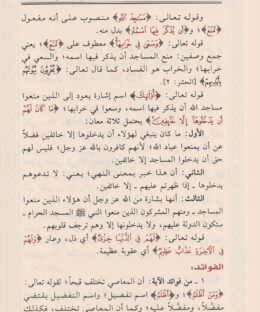 وقوله تعالى: ﴿مَسَٰجِدَ ٱللَّهِ﴾ منصوب على أنه مفعول
﴿مَّنَعَ﴾؛ و﴿أَن يُذۡكَرَ فِيهَا ٱسۡمُهُۥ﴾ بدل منه.
قوله تعالى: ﴿وَسَعَىٰ فِي خَرَابِهَآ﴾ معطوف على ﴿مَّنَعَ﴾؛ يعني
جمع وصفين: منع المساجد أن يذكر فيها اسمه؛ والسعي في
خرابها؛ والخراب هو الفساد، كما قال تعالى: ﴿يُخۡرِبُونَ بُيُوتَهُم
بِأَيۡدِيهِمۡ﴾ [الحشر: ٢].
قوله تعالى: ﴿أُوْلَٰٓئِكَ﴾ اسم إشارة يعود إلى الذين منعوا
مساجد الله أن يذكر فيها اسمه، وسعوا في خرابها؛ ﴿مَا كَانَ لَهُمۡ
أَن يَدۡخُلُوهَآ إِلَّا خَآئِفِينَ﴾ يحتمل ثلاثة معان:
الأول: ما كان ينبغي لهؤلاء أن يدخلوها إلا خائفين فضلاً
عن أن يمنعوا عباد الله؛ لأنهم كافرون بالله عز وجل؛ فليس لهم
حق أن يدخلوا المساجد إلا خائفين.
الثاني: أن هذا خبر بمعنى النهي؛ يعني: لا تدعوهم
يدخلوها ـ إذا ظهرتم عليهم ـ إلا خائفين.
الثالث: أنها بشارة من الله عز وجل أن هؤلاء الذين منعوا
المساجد ـ ومنهم المشركون الذين منعوا النبي ﷺ المسجد الحرام ـ
ستكون الدولة عليهم، ولا يدخلونها إلا وهم ترجف قلوبهم.
قوله تعالى: ﴿لَهُمۡ فِي ٱلدُّنۡيَا خِزۡيٞ﴾ أي ذل، وعار ﴿وَلَهُمۡ
فِي ٱلۡأٓخِرَةِ عَذَابٌ عَظِيمٞ﴾ أي عقوبة عظيمة.
الفوائد:
١ ـ من فوائد الآية: أن المعاصي تختلف قبحاً؛ لقوله تعالى:
﴿وَمَنۡ أَظۡلَمُ﴾؛ و﴿أَظۡلَمُ﴾ اسم تفضيل؛ واسم التفضيل يقتضي
مفضَّلاً، ومفضَّلاً عليه؛ وكما أن المعاصي تختلف، فكذلك